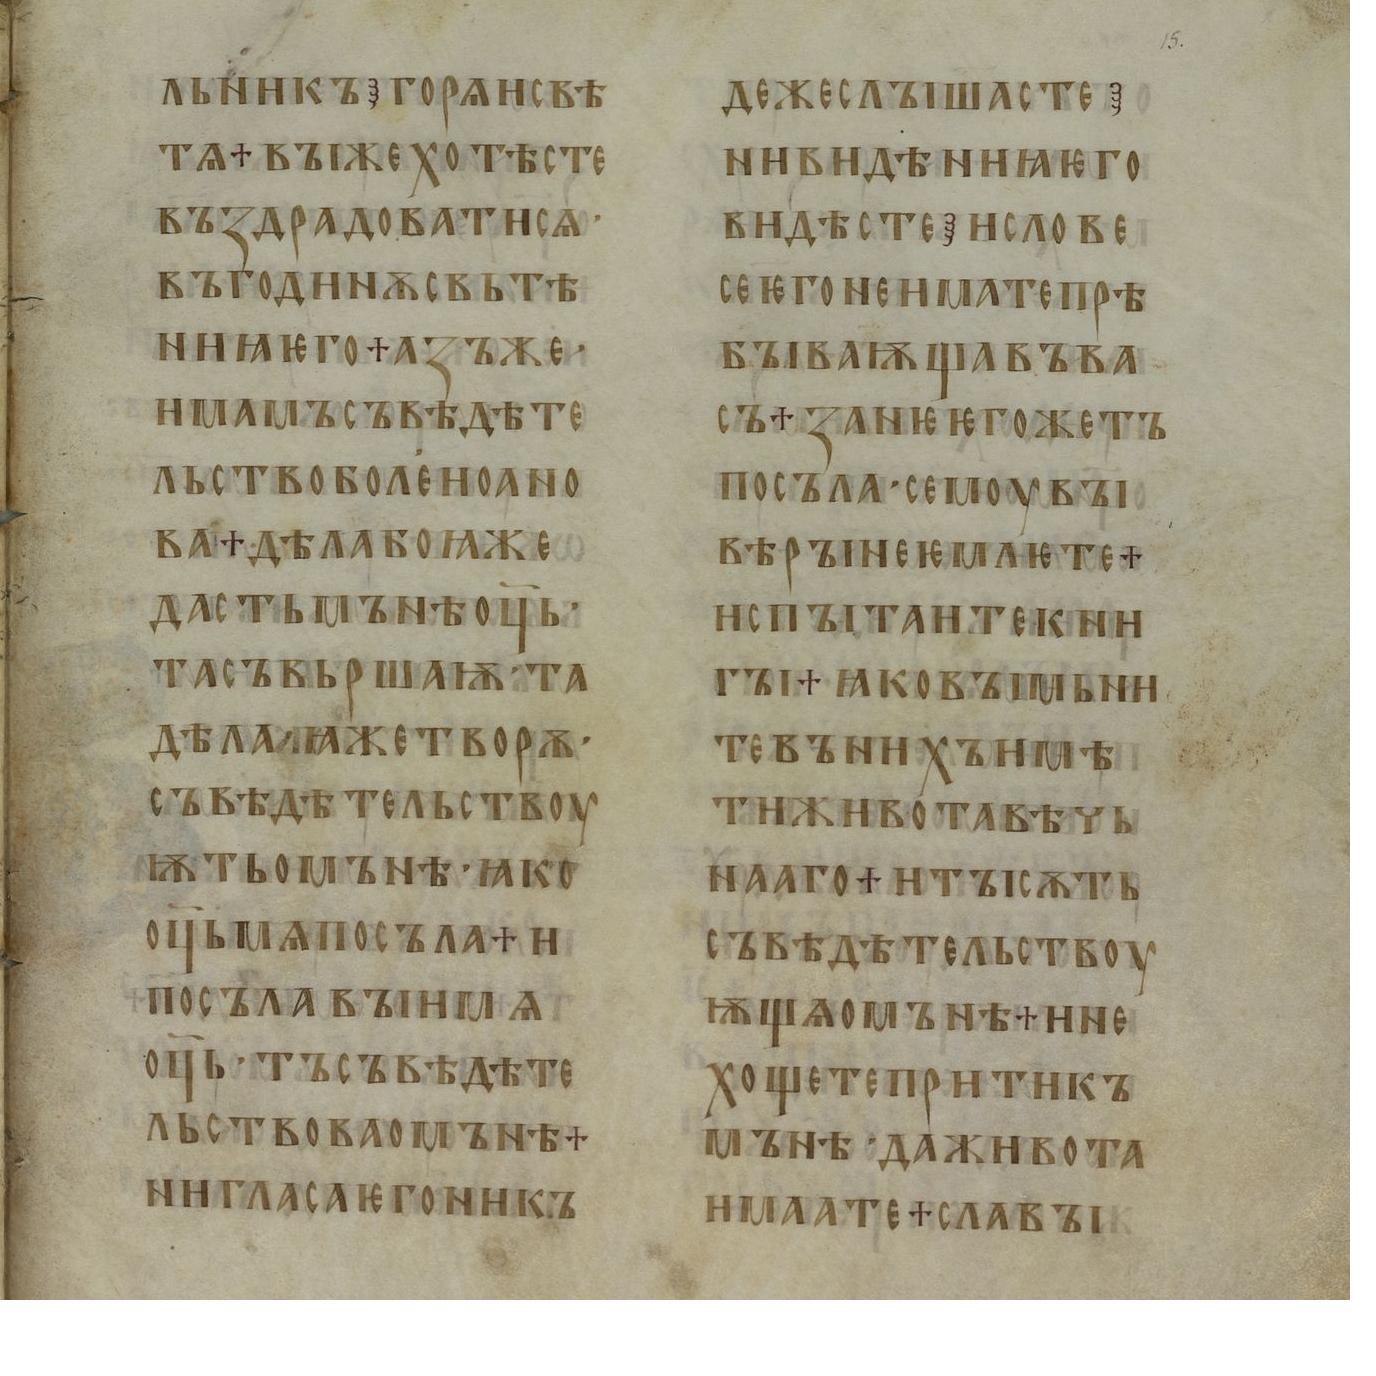 15.
льникъ ⁘ горѧисвѣ
тѧ+въıжехотѣсте
въздрадоватисѧ·
въгодинѫсвьтѣ
ниꙗѥго+азъже·
имамъсъвѣдѣте
льствоболеноано
ва+дѣлабоꙗже
дастьмънѣоц҃ь·
тасъвьршаѭ·та
дѣла·ꙗжетворѫ·
съвѣдѣтельствоу
ѭтьомънѣ·ꙗко
оц҃ьмѧпосъла+и
посълавъıимѧ
оц҃ь·тъсъвѣдѣте
льствоваомънѣ+
нигласаѥгоникъ
дежеслъıшасте ⁘
нивидѣниꙗѥго
видѣсте ⁘ ислове
сеѥгонеиматепрѣ
бъıваѭщавъва
съ+занѥѥгожетъ
посъла·семоувъı
вѣръıнеѥмлѥте+
испъıтаитекни
гъı+ꙗковъıмьни
тевънихъимѣ
тиживотавѣчь
нааго+итъıсѫть
съвѣдѣтельствоу
ѭщѧомънѣ+ине
хощетепритикъ
мънѣ·даживота
имаате+славъı